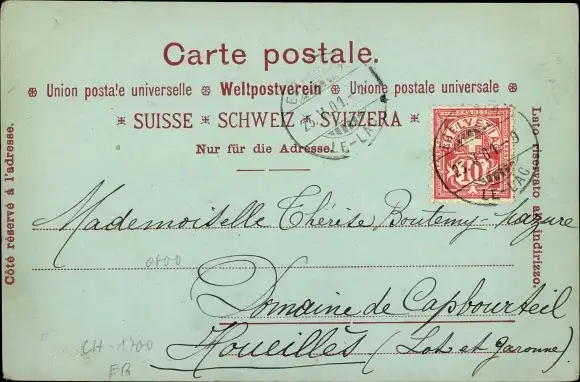 Carte postale.
Union postale universelle Weltpostverein Unione postale universale
SUISSE SCHWEIZ SVIZZERA
Nur für die Adresse.
Côté réservé à l'adresse.
Lato riservato all'indirizzo.
HELVETIA
10
25.X.01
LE-LAC
LE-LAC
Mademoiselle Thérèse Boutemy-
0800
Domaine de Capbourteil
Houeillès (Lot et Garonne)
CH-1700
FR